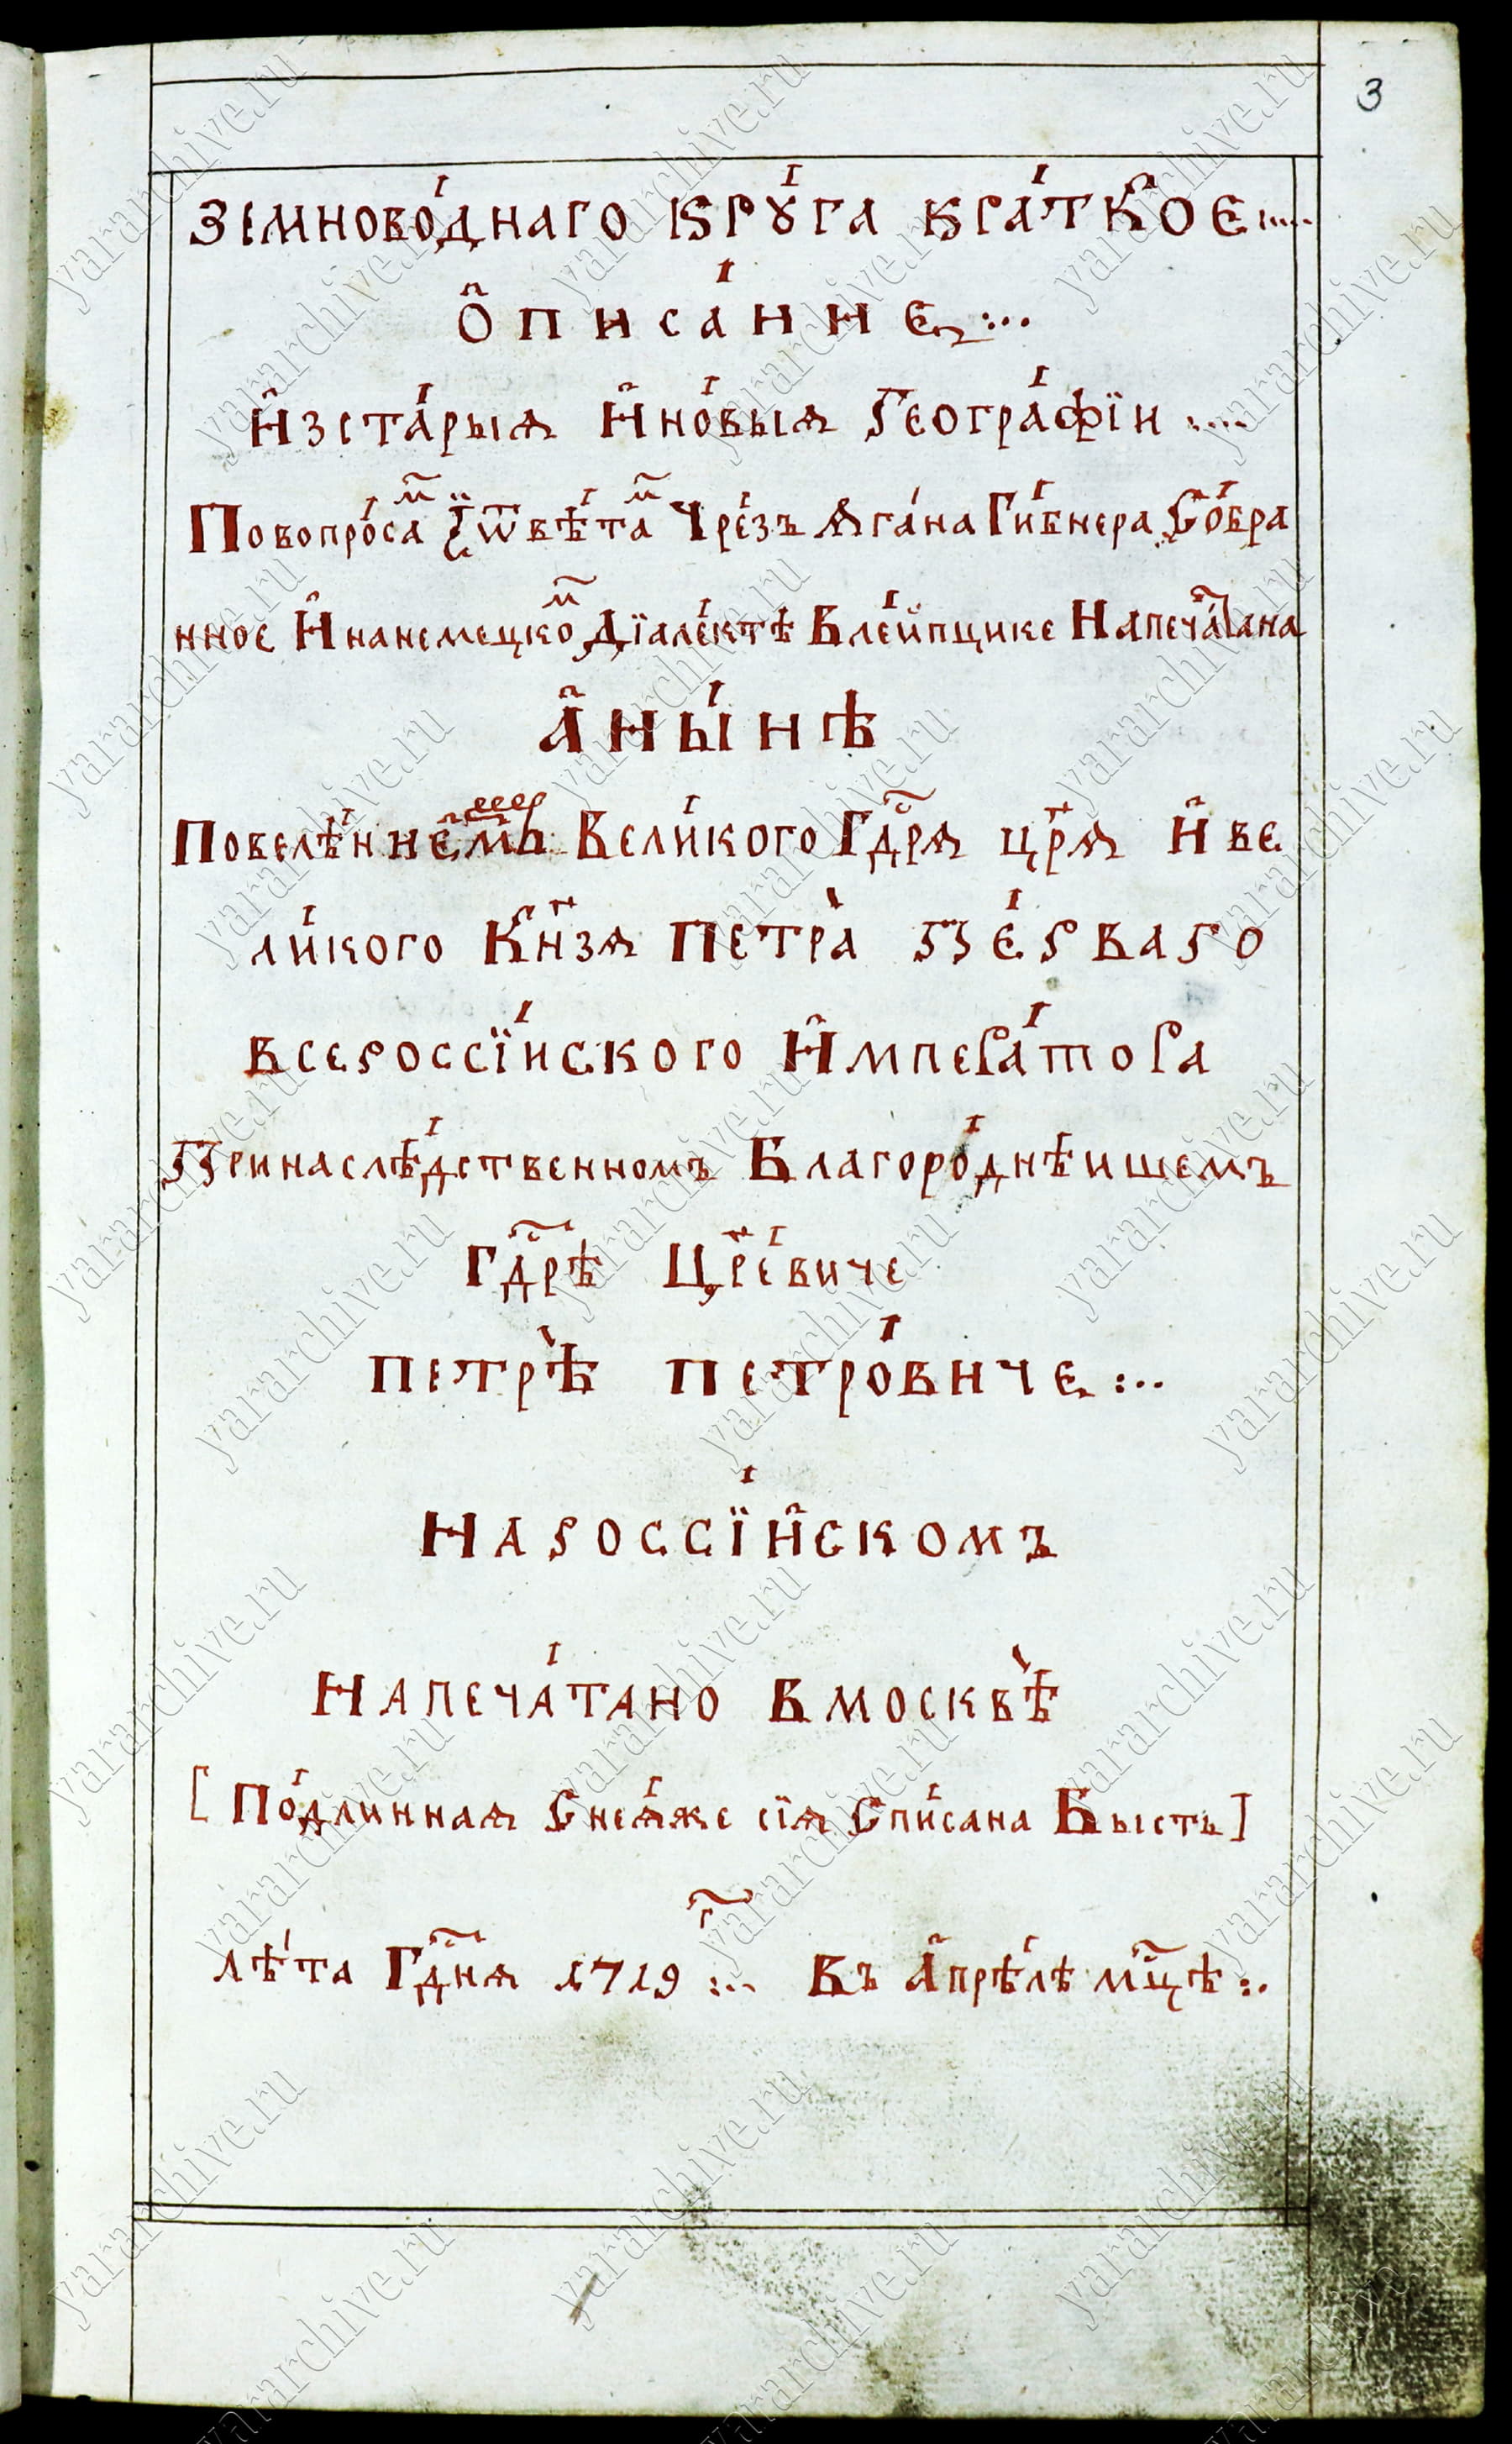 3
Земново́днаго крꙋ́га кра́ткое :...
Описа́ние :...
Изста́рыя ино́выя географі́и :...
Повопро́саⷨ ѿвѣ́таⷨ чре́зъ Яга́на Ги́бнера Со́бра
нное Инанемецкоⷨ Дїале́ктѣ Вле́ипщике Напеча́тана
А ны́нѣ
Повелѣ́ннемъ Вели́кого Гдⷭ҇ря цр҃я И ве
ли́кого Кн҃зя Петра̀ Пе́рваго
Всероссі́иского Импера́тора
Принаслѣ́дственномъ Благоро́днѣишемъ
Гдⷭ҇рѣ Цр҃е́виче
Петрѣ̀ Петро́виче :...
Нароссі́искомъ
Напеча́тано Вмосквѣ̀
[ По́длинная Снея́же сїя Спи́сана Бысть ]
лѣ́та Гдⷭ҇ня 1719 г :... Въ Апрѣ́лѣ мцⷭ҇ѣ :.
yararchive.ru